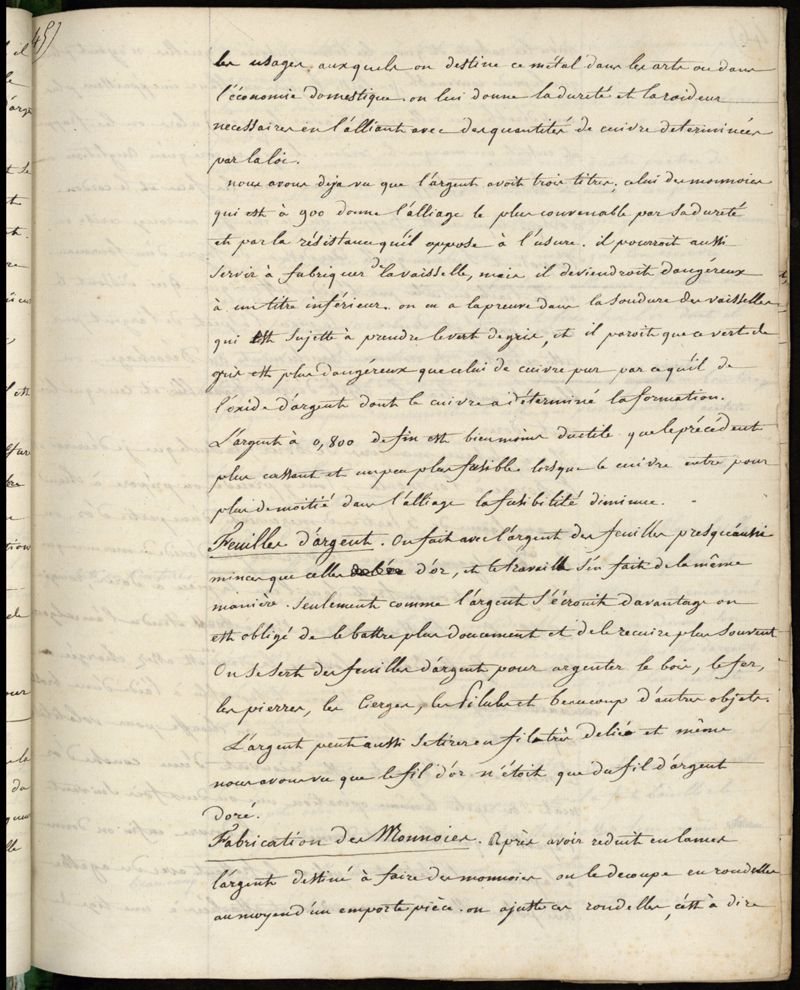 457
les usages auxquels on destine ce métal dans les arts ou dans
l'économie domestique on lui donne la dureté et la roideur
necessaires en l'alliant avec des quantités de cuivre determinées
par la loi.
nous avons deja vu que l'argent avoit trois titres, celui des monnoies
qui est à 900 donne l'alliage le plus convenable par sa dureté
et par la résistance qu'il oppose à l'usure. il pourroit aussi
servir à fabriquer de la vaisselle, mais il deviendroit dangéreux
à un titre inférieur. on en a la preuve dans la soudure des vaisselles
qui est sujette à prendre le vert de gris, et il paroit que ce vert de
gris est plus dangéreux que celui de cuivre pur par ce qu'il de
l'oxide d'argent dont le cuivre a déterminé la formation.
L'argent à 0,800 de fin est bien moins ductile que le précédent
plus cassant et un peu plus fusible lorsque le cuivre entre pour
plus de moitié dans l'alliage la fusibilité diminue.
Feuilles d'argent. On fait avec l'argent des feuilles presqu'aussi
minces que celles d'or, et le travail s'en fait de la même
manière. Seulement comme l'argent s'écrouit davantage on
est obligé de le battre plus doucement et de le recuire plus souvent
On se sert des feuilles d'argent pour argenter le bois, le fer,
les pierres, les Cierges, les Pilules et beaucoup d'autres objets.
L'argent peut aussi se tirer en fils très deliés et même
nous avons vu que le fil d'or n'étoit que du fil d'argent
doré.
Fabrication des Monnoies. Après avoir reduit en lames
l'argent destiné à faire des monnoies on le decoupe en rondelles
au moyen d'un emporte pièce. on ajuste ces rondelles, c'est à dire